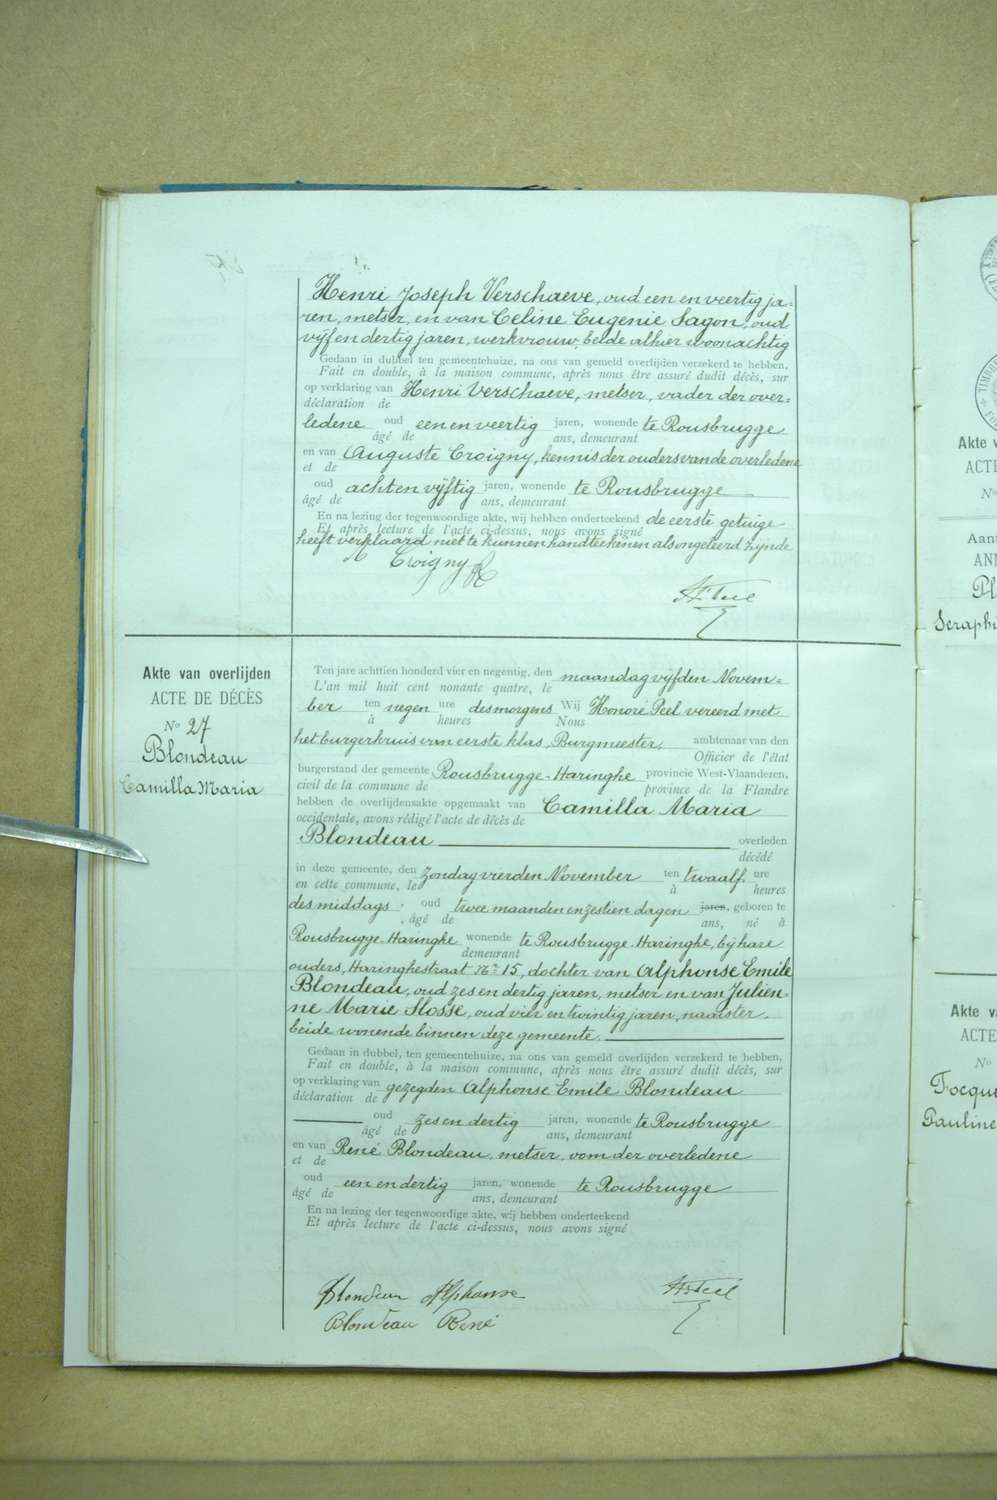 Henri Joseph Verschaeve, oud een en veertig ja-
ren, metser, en van Celine Eugenie Sagon, oud
vijf en dertig jaren, werkvrouw, beide alhier woonachtig
Gedaan in dubbel ten gemeentehuize, na ons van gemeld overlijden verzekerd te hebben,
Fait en double, à la maison commune, après nous être assuré dudit décès, sur
op verklaring van Henri Verschaeve, metser, vader der over-
déclaration de
ledene oud een en veertig jaren, wonende te Rousbrugge
âgé de ans, demeurant
en van Auguste Croigny, kennis der ouders van de overledene
et de
oud acht en vijftig jaren, wonende te Rousbrugge
âgé de ans, demeurant
En na lezing der tegenwoordige akte, wij hebben onderteekend de eerste getuige
Et après lecture de l'acte ci-dessus, nous avons signé
heeft verklaard niet te kunnen handteekenen als ongeleerd zijnde
Croigny
Akte van overlijden
ACTE DE DÉCÈS
No 27
Blondeau
Camilla Maria
Ten jare achttien honderd vier en negentig, den maandag vijfden Novem-
L'an mil huit cent nonante quatre, le
ber ten negen ure des morgens Wij Honoré Peel vereerd met
à heures Nous
het burgerkruis van eerste klas, Burgmeester, ambtenaar van den
Officier de l'état
burgerstand der gemeente Rousbrugge-Haringhe provincie West-Vlaanderen,
civil de la commune de province de la Flandre
hebben de overlijdensakte opgemaakt van Camilla Maria
occidentale, avons rédigé l'acte de décès de
Blondeau overleden
décédé
in deze gemeente, den Zondag vierden November ten twaalf ure
en cette commune, le à heures
des middags oud twee maanden en zestien dagen jaren, geboren te
âgé de ans, né à
Rousbrugge-Haringhe wonende te Rousbrugge-Haringhe, bij hare
demeurant
ouders, Haringhestraat No 15, dochter van Alphonse Emile
Blondeau, oud zes en dertig jaren, metser en van Julien-
ne Marie Slosse, oud vier en twintig jaren, naaister
beide wonende binnen deze gemeente.
Gedaan in dubbel, ten gemeentehuize, na ons van gemeld overlijden verzekerd te hebben,
Fait en double, à la maison commune, après nous être assuré dudit décès, sur
op verklaring van gezegden Alphonse Emile Blondeau
déclaration de
oud zes en dertig jaren, wonende te Rousbrugge
âgé de ans, demeurant
en van René Blondeau, metser, oom der overledene
et de
oud een en dertig jaren, wonende te Rousbrugge
âgé de ans, demeurant
En na lezing der tegenwoordige akte, wij hebben onderteekend
Et après lecture de l'acte ci-dessus, nous avons signé
Blondeau Alphonse
Blondeau René
Akte v
ACTE
No
Aan
ANN
Pl
Seraphi
Akte va
ACTE
No
Focqu
Pauline